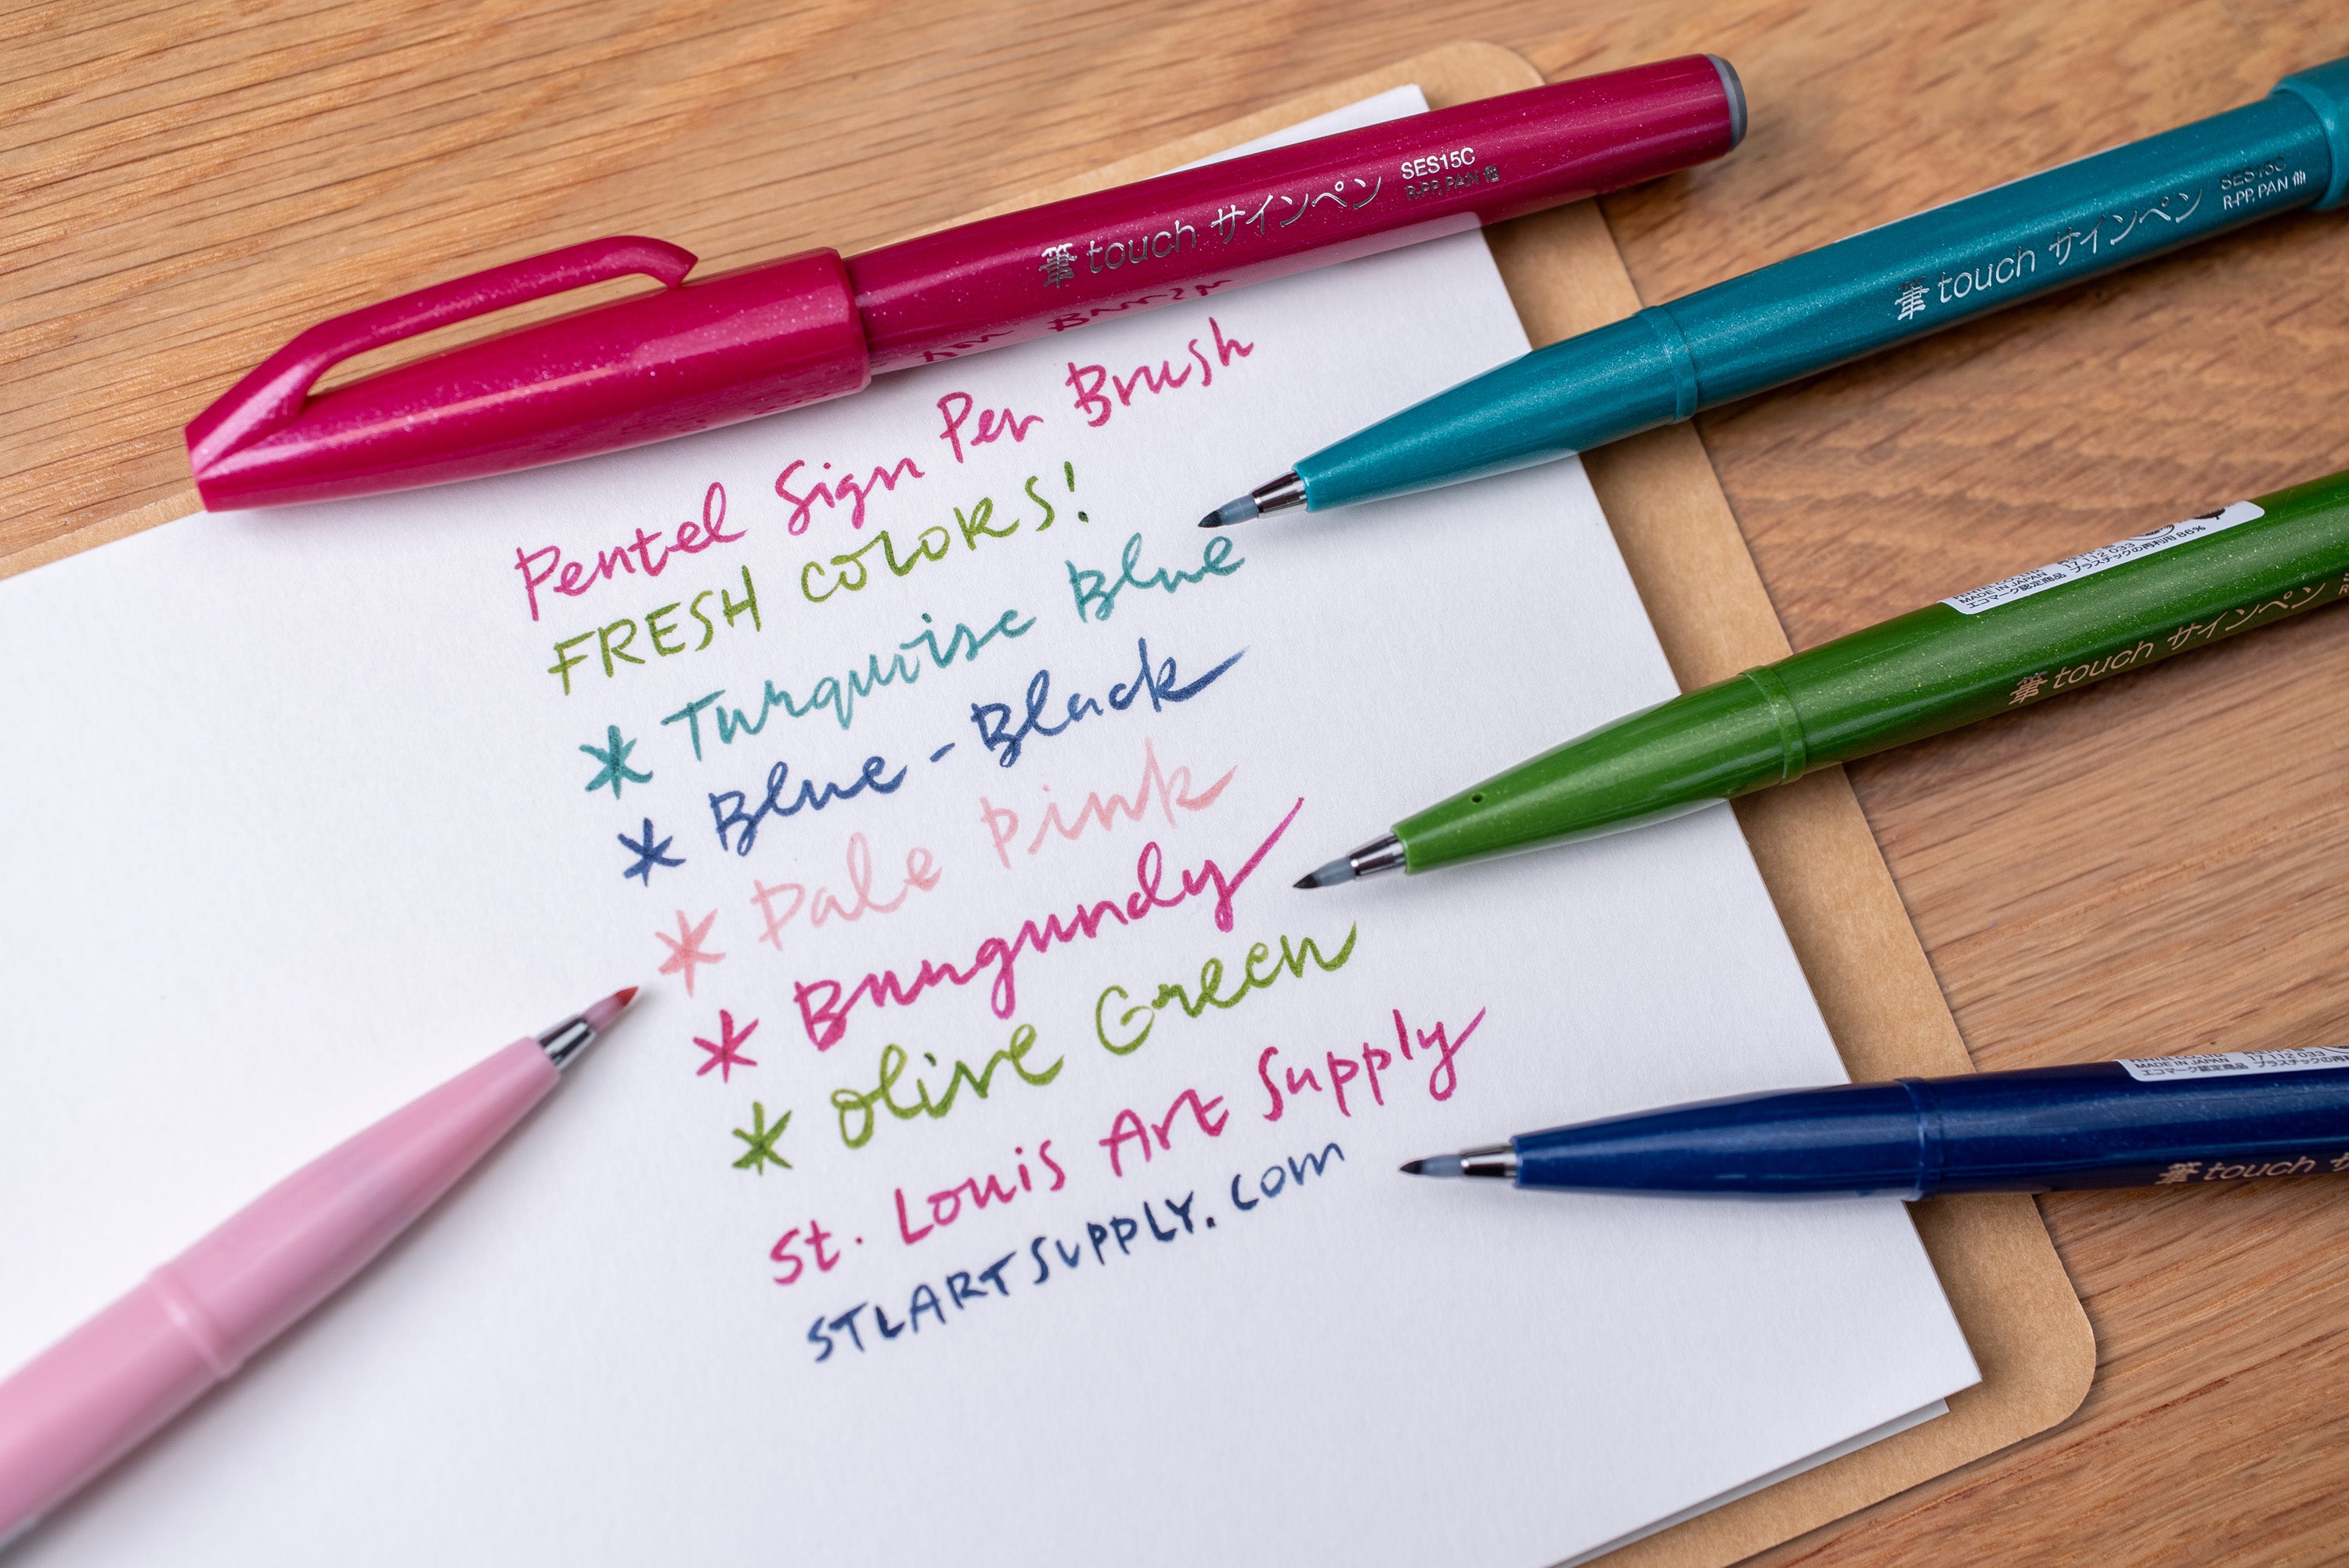 筆touch サインペン SES15C
R-PP, PAN 他
筆touch サインペン SES15C
R-PP, PAN 他
Pentel Sign Pen Brush
FRESH COLORS!
* Turquoise Blue
* Blue-Black
* Pale Pink
* Burgundy
* Olive Green
St. Louis Art Supply
STLARTSUPPLY.COM
MADE IN JAPAN 17 112 033
エコマーク認定商品 プラスチックの再利用 86%
筆touch サインペン
MADE IN JAPAN 17 112 033
エコマーク認定商品 プラスチックの再利
筆touch